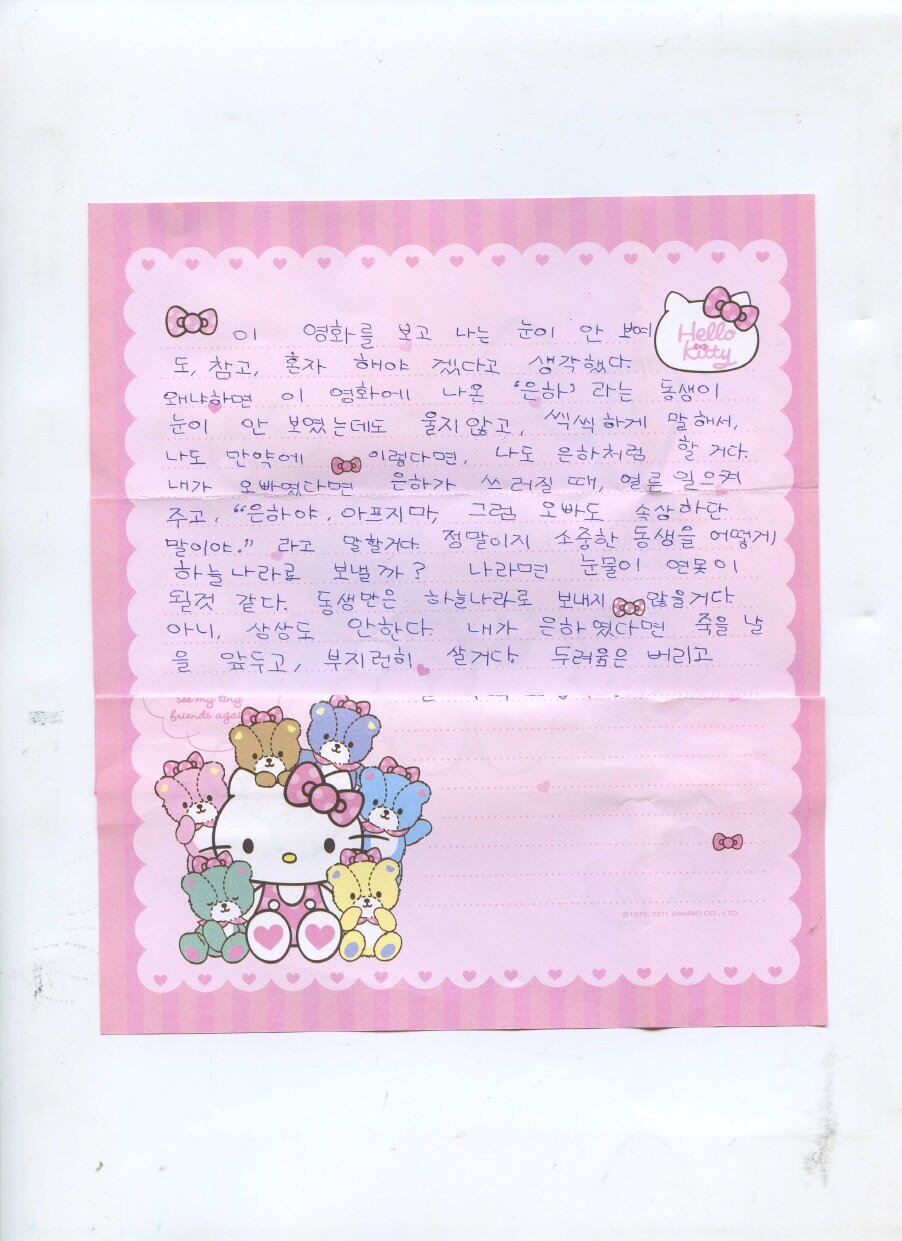 이 영화를 보고 나는 눈이 안 보여
Hello Kitty
도, 참고, 혼자 해야 겠다고 생각했다.
왜냐하면 이 영화에 나온 '은하' 라는 동생이
눈이 안 보였는데도 울지않고, 씩씩하게 말해서,
나도 만약에 이렇다면, 나도 은하처럼 할거다.
내가 오빠였다면 은하가 쓰러질 때, 얼른 일으켜
주고, "은하야, 아프지마, 그럼 오빠도 속상하단
말이야." 라고 말할거다. 정말이지 소중한 동생을 어떻게
하늘나라로 보낼까? 나라면 눈물이 연못이
될것 같다. 동생만은 하늘나라로 보내지 않을거다.
아니, 상상도 안한다. 내가 은하였다면 죽을 날
을 앞두고, 부지런히 살거다. 두려움은 버리고
see my tiny
friends
©1976, 2011 SANRIO CO., LTD.